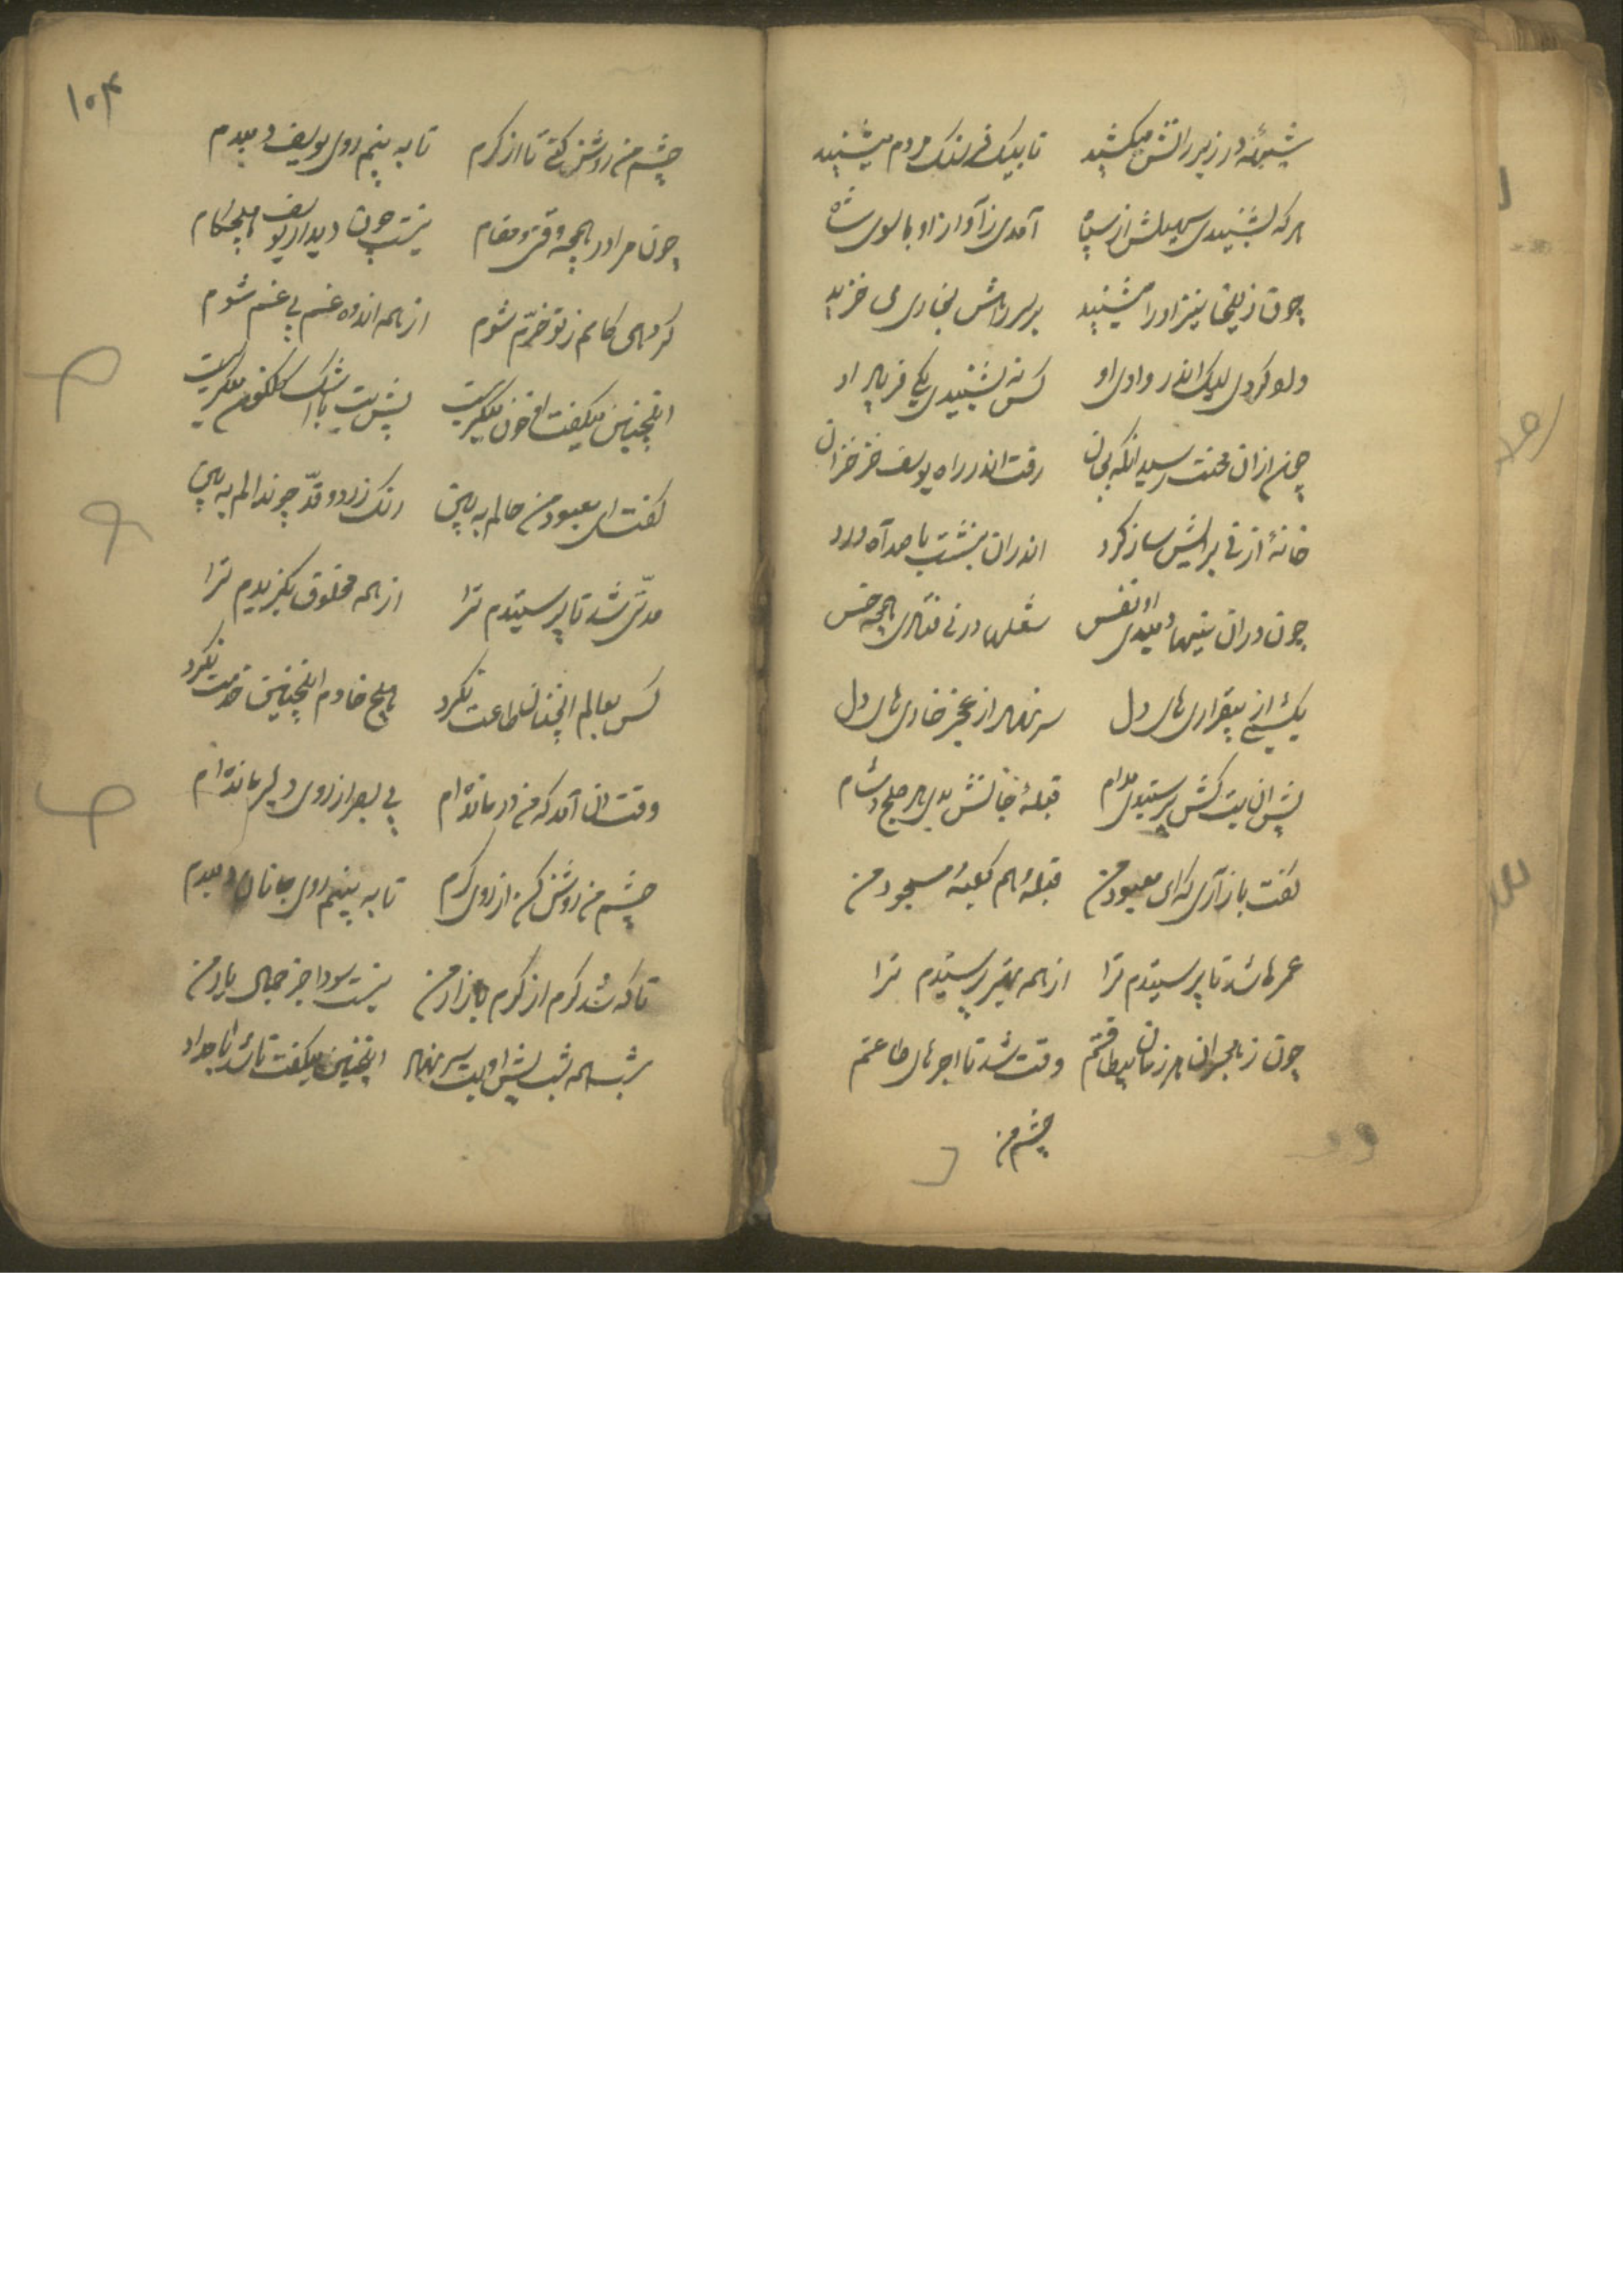 شیهۀ در زیر رانش میکشید تا بیک فرسنک مردم میشنید
هر که بشنیدی صهیلش از سپاه آمدی ز آواز او با سوی شاه
چون زلیخا نیز او را میشنید بر سر راهش بخاری می خزید
ولو کردی لیک اندر وادی او کس نه بشنیدی یکی فریاد او
چون از ان محنت رسید انکه بجان رفت اندر راه یوسف خز خزان
خانۀ از نی برایش ساز کرد اندران بنشست با صد آه و درد
چون دران نیها دمیدی او نفس شعلها در نی فتادی همچه خس
یک شبی از بیقراری های دل سر نهاد از عجز خاری های دل
پیش ان بت کش پرستیدی مدام قبلۀ جانش بدی هر صبح و شام
کفت باز آری که ای معبود من قبلۀ هم کعبۀ مسجود من
عمرها شد تا پرستیدم ترا از همه بهتر پرستیدم ترا
چون ز هجران هر زمان بیطاقتم وقت شد تا اجرهای طاعتم
چشم من
۱۰۴
چشم من روشن کنی تا از کرم تا به بینم روی یوسف دمبدم
چون مرا در همچه وقت و مقام نیست جون دیدار یوسف هیچکام
کر دهی کامم ز تو خرّم شوم از همه اندوه غم بی غم شوم
اینچنین میکفت او خون میکریست پیش بت با اشک کلکون میکریست
کفت ای معبود من حالم به بین رنک زرد و قدّ چو ندالم به بین
مدتی شد تا پرستیدم ترا از همه مخلوق بکزیدم ترا
کس بعالم انچنان طاعت نکرد هیچ خادم اینچنین خدمت نکرد
وقت ان آمد که من در مانده ام بی بصر از روی دلبر مانده ام
چشم من روشن کن از روی کرم تا به بینم روی جانان دمبدم
تا که شد کرم از کرم بازار من نیست سودا جز جمال یار من
شب همه شب پیش او بت سر نهاد اینچنین میکفت تا شد بامداد